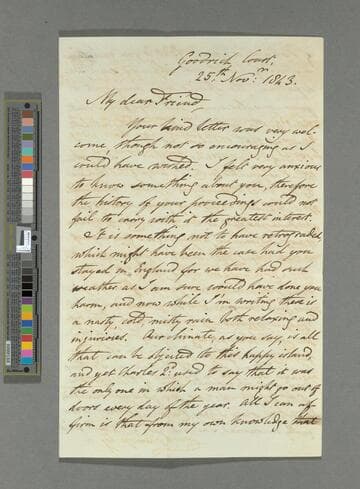 Goodrich Court,
25th Novr. 1843.
My dear Friend
Your kind letter was very wel-
come, though not so encouraging as I
could have wished. I felt very anxious
to know something about you, therefore
the history of your proceedings could not
fail to carry with it the greatest interest.
It is something not to have retrograded
which might have been the case had you
stayed in England for we have had such
weather as I am sure would have done you
harm, and now while I'm writing there is
a nasty, cold, misty rain both relaxing and
injurious. Our climate, as you say, is all
that can be objected to this happy island
and yet Charles 2d. used to say that it was
the only one in which a man might go out of
doors every day of the year. All I can af-
firm is that from my own knowledge that